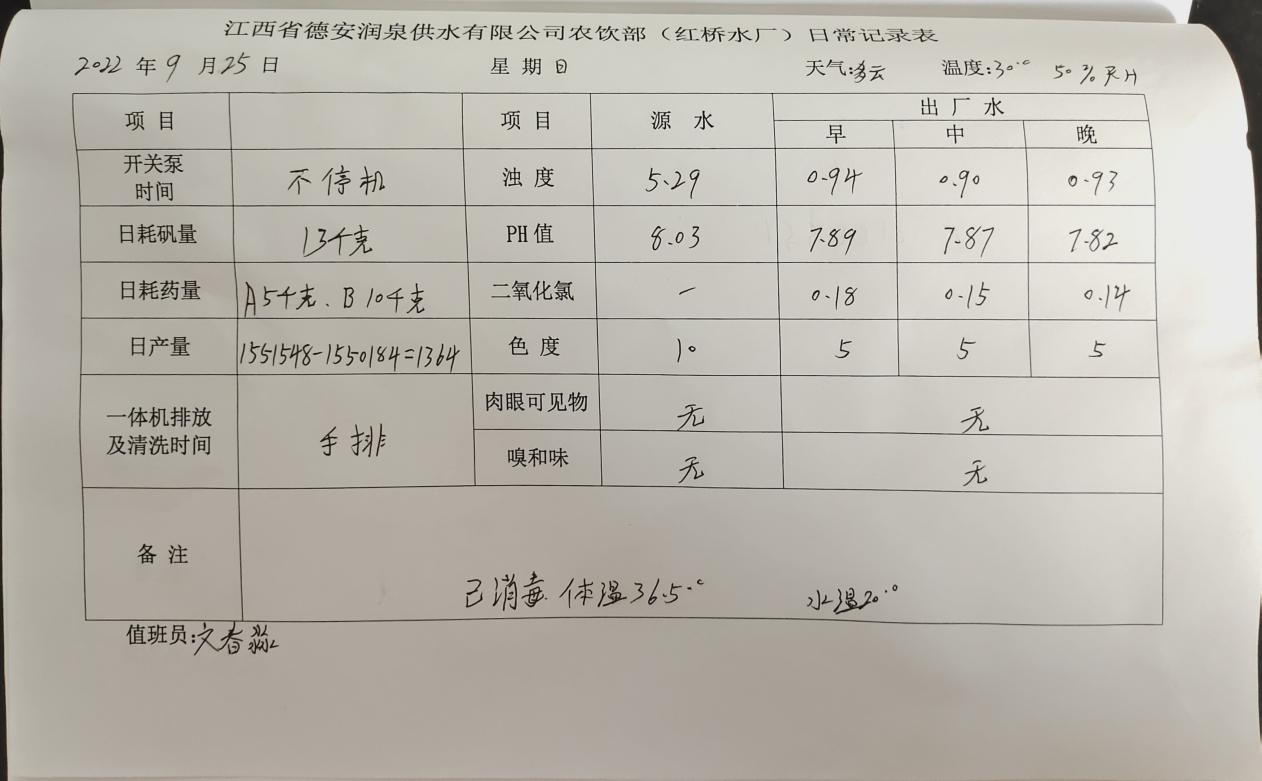 江西省德安润泉供水有限公司农饮部（红桥水厂）日常记录表
2022 年 9 月 25 日 星 期 日 天气:多云 温度:30.℃ 50%RH
项 目 项 目 源 水 出 厂 水
早 中 晚
开关泵时间 不停机 浊 度 5.29 0.94 0.90 0.93
日耗矾量 13千克 PH值 8.03 7.89 7.87 7.82
日耗药量 A5千克、B10千克 二氧化氯 — 0.18 0.15 0.14
日产量 1551548-1550184=1364 色 度 10 5 5 5
一体机排放及清洗时间 手排 肉眼可见物 无 无
嗅和味 无 无
备 注 已消毒 体温36.5.℃ 水温20.°
值班员:文春